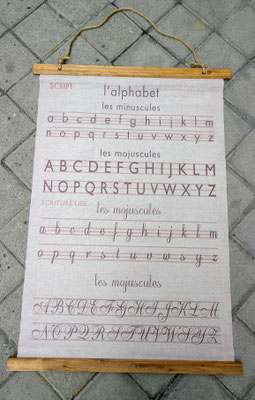 SCRIPT
l'alphabet
les minuscules
a b c d e f g h i j k l m
n o p q r s t u v w x y z
les mojuscules
A B C D E F G H I J K L M
N O P Q R S T U V W X Y Z
ECRITURE LIRE
les mojuscules
a b c d e f g h i j k l m
o p q r s t u v w x y z
les mojuscules
A B C D E F G H I J K L M
N O P Q R S T U V W X Y Z